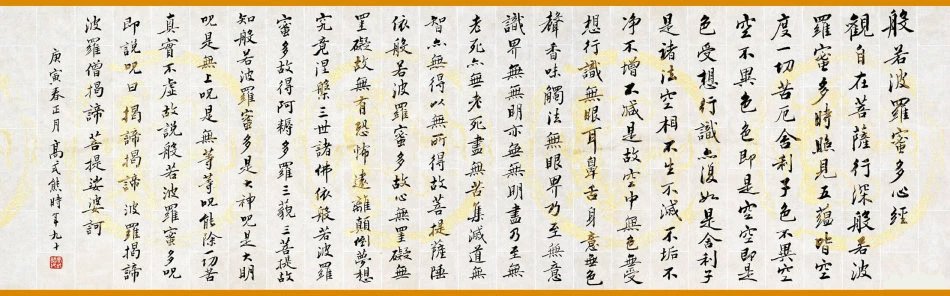 般若波羅蜜多心經
觀自在菩薩行深般若波
羅蜜多時照見五蘊皆空
度一切苦厄舍利子色不異空
空不異色色即是空空即是
色受想行識亦復如是舍利子
是諸法空相不生不滅不垢不
淨不增不減是故空中無色無受
想行識無眼耳鼻舌身意無色
聲香味觸法無眼界乃至無意
識界無無明亦無無明盡乃至無
老死亦無老死盡無苦集滅道無
智亦無得以無所得故菩提薩埵
依般若波羅蜜多故心無罣礙無
罣礙故無有恐怖遠離顛倒夢想
究竟涅槃三世諸佛依般若波羅
蜜多故得阿耨多羅三藐三菩提故
知般若波羅蜜多是大神呪是大明
呪是無上呪是無等等呪能除一切苦
真實不虛故説般若波羅蜜多呪
即説呪曰揭諦揭諦波羅揭諦
波羅僧揭諦菩提娑婆訶
庚寅春正月高式熊時年九十